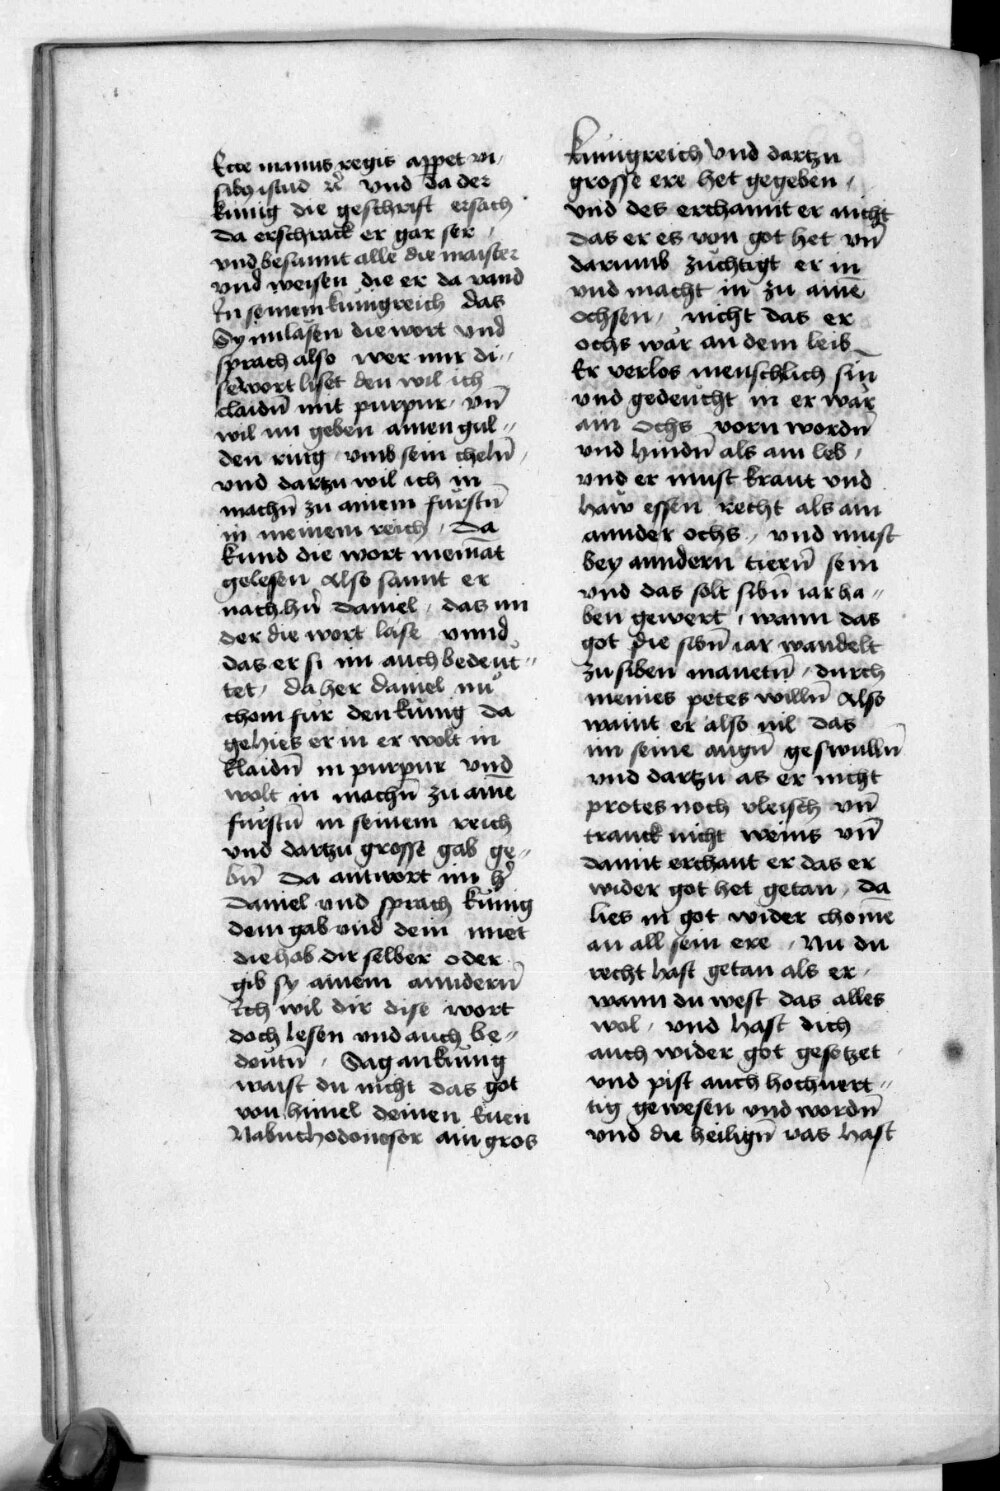 Ecce manus regis appet vi⸗
sibus istud rc̄ vnd da der
kunig die geschrift ersach
da erschrack er gar ser /
vnd besannt alle die maister
vnd weisen die er da vand
In seinem kunigreich das
Sy im lasen die wort vnd
sprach also wer mir di⸗
se wort liset den wil ich
claidn̄ mit purpur / vn̄
wil im geben ainen gul⸗
den ring vmb sein cheln̄ /
vnd dartzu wil ich in
machn̄ zu ainem fürstn̄
in meinem reich / Da
kund die wort niemāt
gelesen Also sannt er
nach hn̄ Daniel / das im
der die wort läse vnnd
das er si im auch bedeut⸗
tet / da her Daniel nů
chom für den kunig da
gehies er in er wolt in
klaidn̄ in purpur vnd
wolt in machn̄ zu aine͞
fürstn̄ in seinem reich
vnd dartzu grosse gab ge⸗
bn̄ Da antwort im h͛
Daniel vnd sprach kunig
dein gab vnd dein miet
die hab dir selber oder
gib sy ainem anndern̄
Ich wil dir dise wort
doch lesen vnd auch be⸗
deutn̄ / Sag an kunig
waist du nicht das got
von himel deinen Enen
Nabuchodonosor ain gros
kunigreich vnd dartzu
grosse ere het gegeben /
vnd des erchannt er nicht
das er es von got het vn̄
darumb züchtigt er in
vnd macht in zu aine͞
ochsen / nicht das er
ochs wär an dem leib
Er verlos menschlich sin̄
vnd gedeücht in er wär
ain ochs vorn wordn̄
vnd hindn̄ als ain leb /
vnd er must kraut vnd
haw essen recht als ain
annder ochs / vnd must
bey anndern tiern̄ sein
vnd das solt sibn̄ iar ha⸗
ben gewert / wann das
got die sibn̄ iar wandelt
zu siben manetn̄ / durch
meines petes willn̄ Also
waint er also vil das
im seine augn̄ geswulln̄
vnd dartzu as er nicht
protes noch vleisch vn̄
tranck nicht weins vn̄
damit erchant er das er
wider got het getan / Da
lies in got wider chome͞
an all sein ere / Nu du
recht hast getan als er /
wann du west das alles
wol / vnd hast dich
auch wider got gesetzet
vnd pist auch hochuert⸗
tig gewesen vnd wordn̄
vnd die heilign̄ vas hast